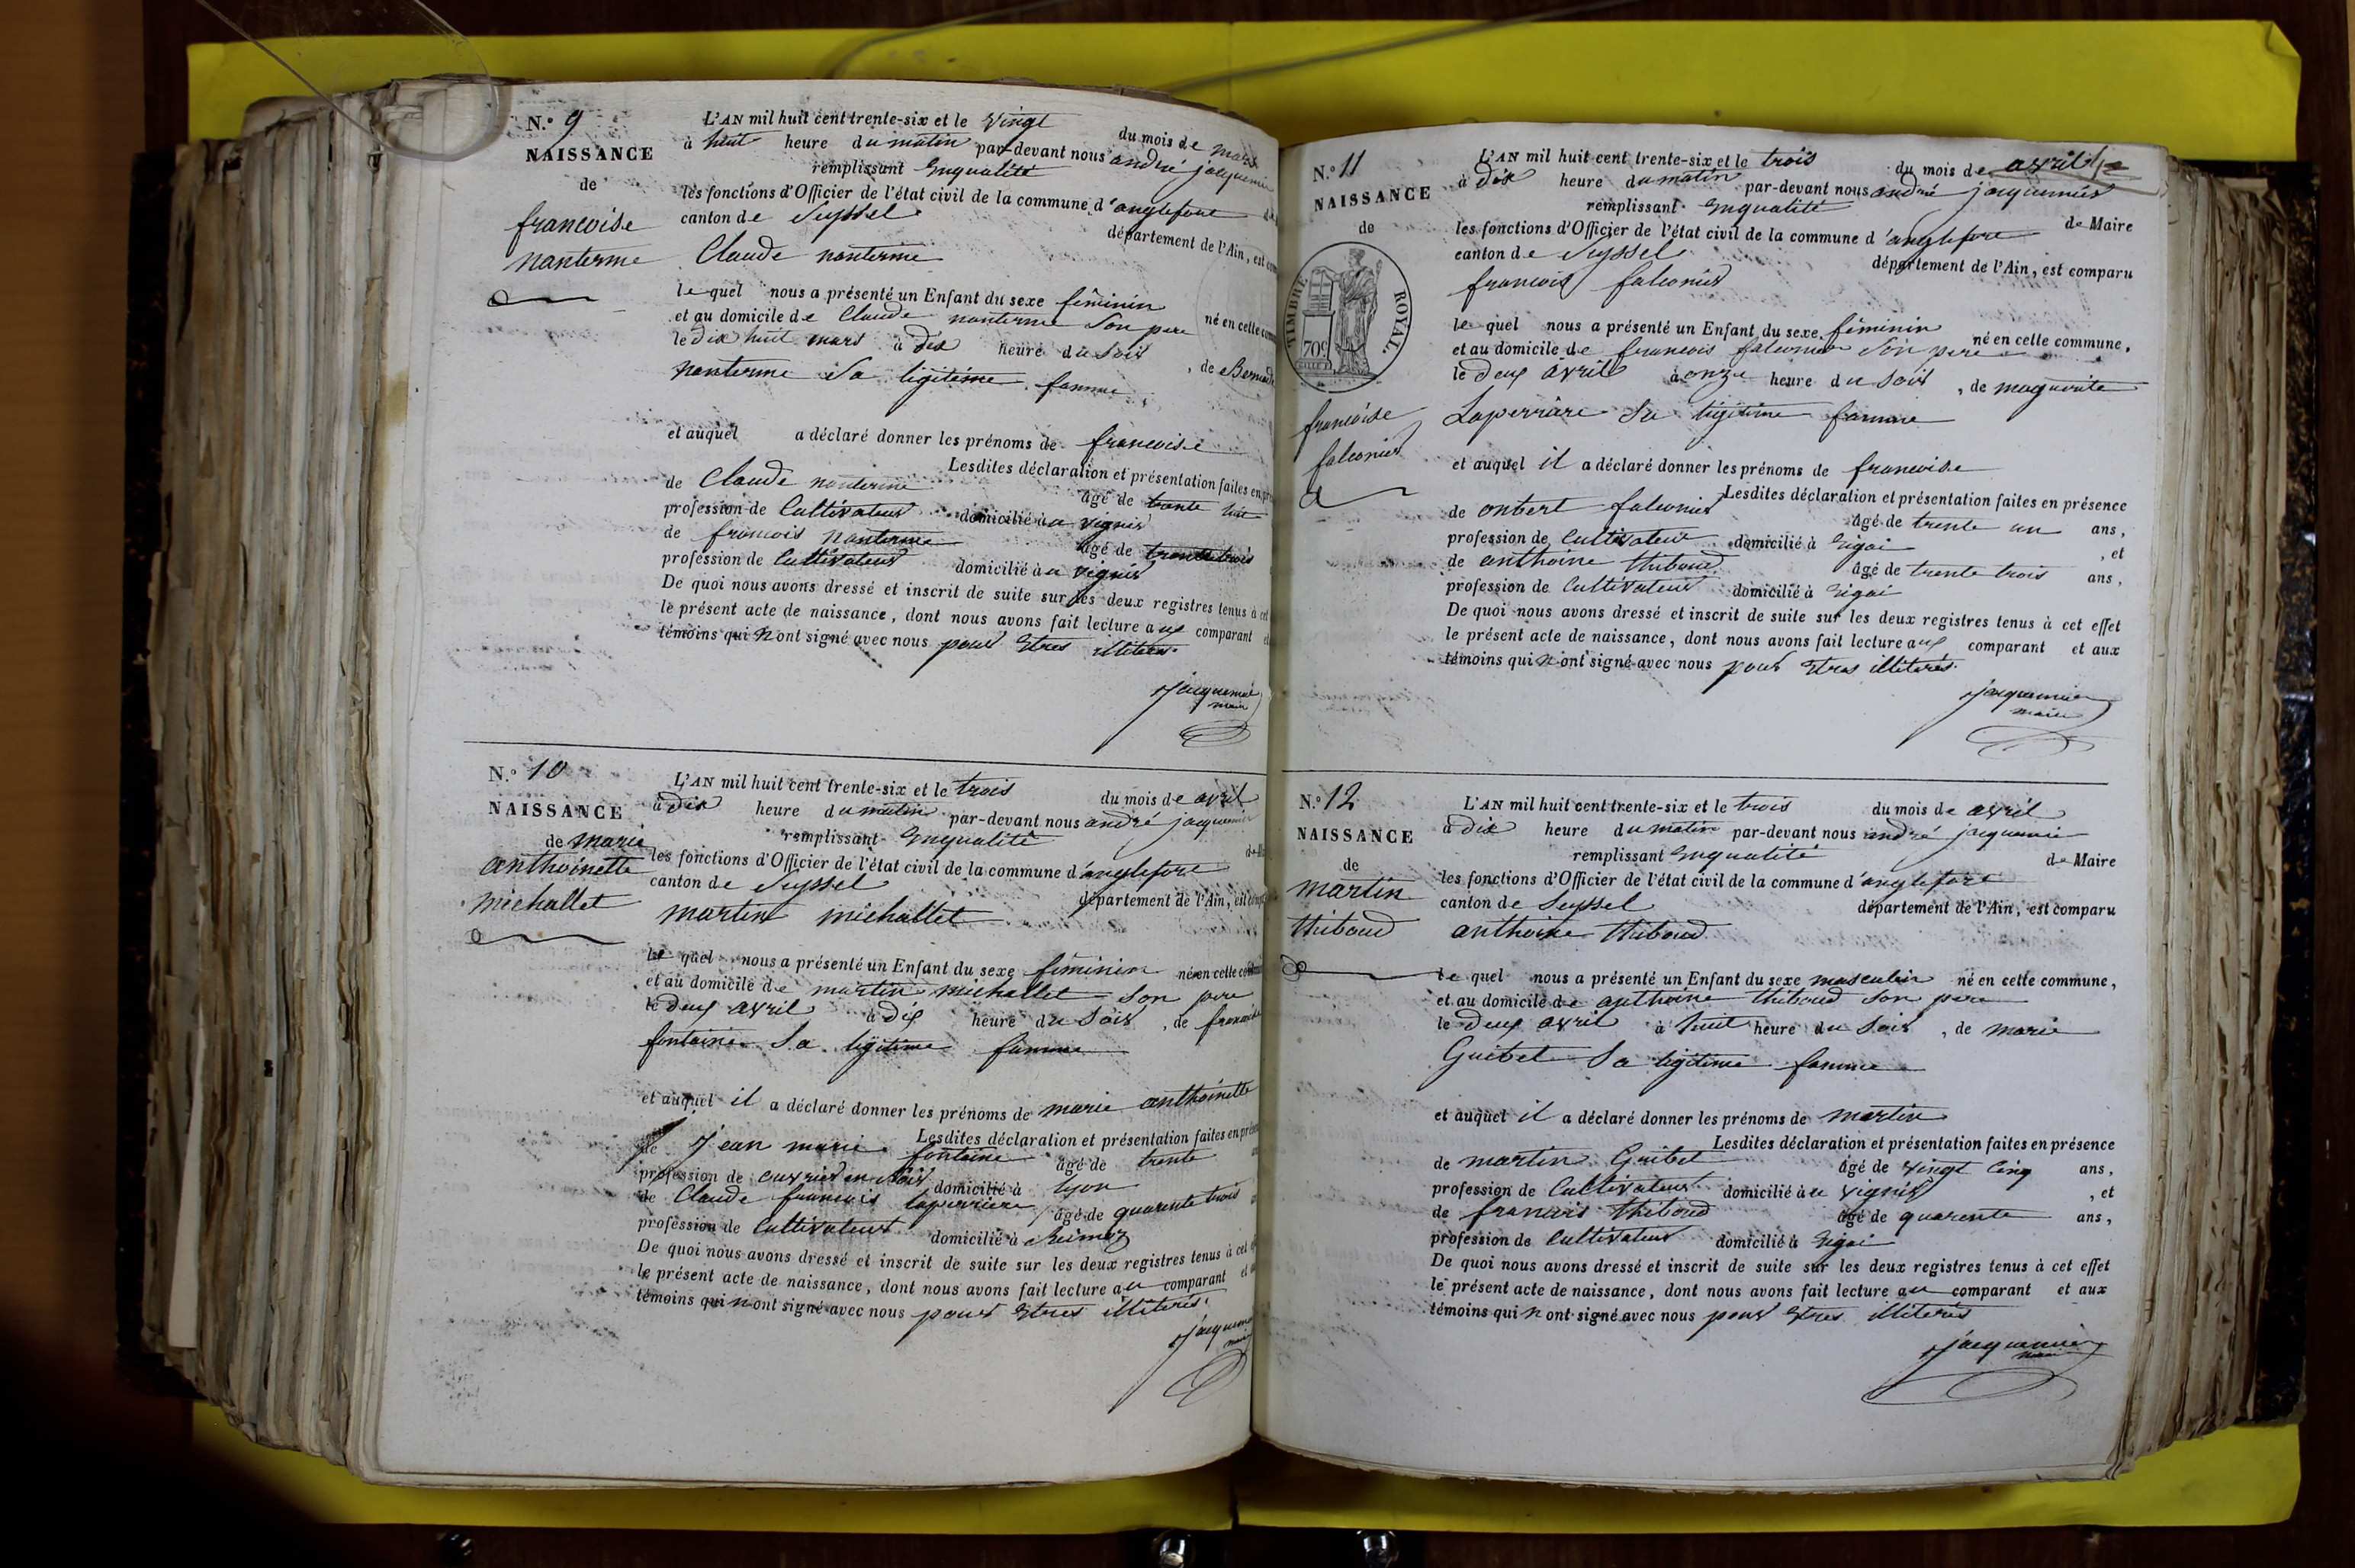 N.° 9
NAISSANCE
de
francoise
nanterme
L'AN mil huit cent trente-six et le vingt du mois de mars
à huit heure du matin par-devant nous andré jacquemier
remplissant enqualité
les fonctions d'Officier de l'état civil de la commune d'anglefort
canton de Seyssel département de l'Ain, est
Claude nanterme
lequel nous a présenté un Enfant du sexe féminin né en cette
et au domicile de Claude nanterme Son pere
le dix huit mars à dix heure du Soir, de
nanterme Sa ligitime famme
et auquel a déclaré donner les prénoms de francoise
Lesdites déclaration et présentation faites en
de Claude nanterme âgé de trante huit
profession de Cultivateur domicilié à au vignis
de francois nanterme âgé de trante trois
profession de Cultivateur domicilié à au vignis
De quoi nous avons dressé et inscrit de suite sur les deux registres tenus à cet
le présent acte de naissance, dont nous avons fait lecture aux comparant et
témoins qui n ont signé avec nous pour Etres illiteres
jacquemier
maire
N.° 10
NAISSANCE
de marie
anthoinette
michallet
L'AN mil huit cent trente-six et le trois du mois de avril
à dix heure du matin par-devant nous andré jacquemier
remplissant enqualité
les fonctions d'Officier de l'état civil de la commune d'anglefort
canton de Seyssel département de l'Ain, est
martin michallet
le quel nous a présenté un Enfant du sexe féminin né en cette
et au domicile de martin michallet Son pere
le deux avril à dix heure du Soir, de francoise
fontaine Sa ligitime famme
et auquel il a déclaré donner les prénoms de marie anthoinette
Lesdites déclaration et présentation faites en
de jean marie fontaine âgé de trente
profession de ouvrier en soie domicilié à lyon
de Claude francois laperriere âgé de quarente trois
profession de Cultivateur domicilié à
De quoi nous avons dressé et inscrit de suite sur les deux registres tenus à cet
le présent acte de naissance, dont nous avons fait lecture au comparant et
témoins qui n ont signé avec nous pour Etres illiterés.
jacquemier
maire
N.° 11
NAISSANCE
de
TIMBRE ROYAL.
70c
francoise
falconier
L'AN mil huit cent trente-six et le trois du mois de avril
à dix heure du matin par-devant nous andré jacquemier
remplissant enqualité de Maire
les fonctions d'Officier de l'état civil de la commune d'anglefort
canton de Seyssel département de l'Ain, est comparu
francois falconier
le quel nous a présenté un Enfant du sexe féminin né en cette commune,
et au domicile de francois falconier Son pere
le deux avril à onze heure du Soir, de marguerite
Laperriare Sa ligitime famme
et auquel il a déclaré donner les prénoms de francoise
Lesdites déclaration et présentation faites en présence
de falconier âgé de trente un ans,
profession de Cultivateur domicilié à, et
de anthoine thiboud âgé de trente trois ans,
profession de Cultivateur domicilié à
De quoi nous avons dressé et inscrit de suite sur les deux registres tenus à cet effet
le présent acte de naissance, dont nous avons fait lecture aux comparant et aux
témoins qui n ont signé avec nous pour Etres illiterés.
jacquemier
maire
N.° 12
NAISSANCE
de
martin
thiboud
L'AN mil huit cent trente-six et le trois du mois de avril
à dix heure du matin par-devant nous andré jacquemier
remplissant enqualité de Maire
les fonctions d'Officier de l'état civil de la commune d'anglefort
canton de Seyssel département de l'Ain, est comparu
anthoine thiboud
le quel nous a présenté un Enfant du sexe masculin né en cette commune,
et au domicile de anthoine thiboud Son pere
le deux avril à huit heure du Soir, de marie
Guibet Sa ligitime famme
et auquel il a déclaré donner les prénoms de martin
Lesdites déclaration et présentation faites en présence
de martin Guibet âgé de vingt cinq ans,
profession de Cultivateur domicilié à au vignis, et
de francois thiboud âgé de quarente ans,
profession de Cultivateur domicilié à
De quoi nous avons dressé et inscrit de suite sur les deux registres tenus à cet effet
le présent acte de naissance, dont nous avons fait lecture au comparant et aux
témoins qui n ont signé avec nous pour Etres illiterés
jacquemier
maire